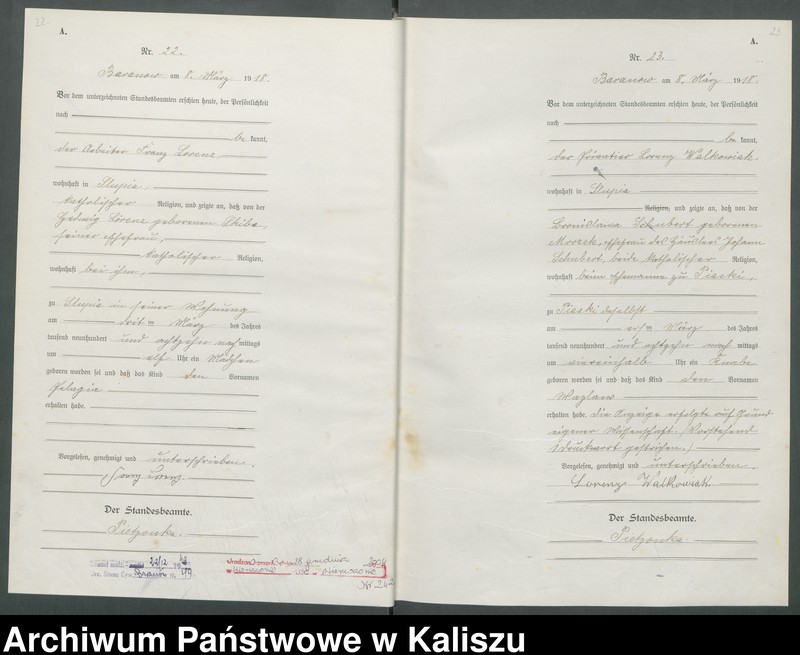 22
A.
Nr. 22.
Baranow am 8. März 1918.
Vor dem unterzeichneten Standesbeamten erschien heute, der Persönlichkeit
nach
be kannt,
der Arbeiter Franz Lorenz
wohnhaft in Slupia,
katholischer Religion, und zeigte an, daß von der
Hedwig Lorenz geborenen Skiba,
seiner Ehefrau,
katholischer Religion,
wohnhaft bei ihm,
zu Slupia in seiner Wohnung
am März des Jahres
tausend neunhundert und achtzehn nach mittags
um elf Uhr ein Mädchen
geboren worden sei und daß das Kind den Vornamen
Pelagia
erhalten habe.
Vorgelesen, genehmigt und unterschrieben.
Franz Lorenz
Der Standesbeamte.
Pietzonka.
23
A.
Nr. 23.
Baranow am 8. März 1918.
Vor dem unterzeichneten Standesbeamten erschien heute, der Persönlichkeit
nach
be kannt,
der Lorenz Walkowiak
wohnhaft in Slupia
Religion, und zeigte an, daß von der
Bronislawa Schubert geborenen
Mrozek, Ehefrau des Häuslers Johann
Schubert, beide katholischer Religion,
wohnhaft beim Ehemanne zu Piaski,
zu Piaski daselbst
am März des Jahres
tausend neunhundert und achtzehn nach mittags
um viereinhalb Uhr ein Knabe
geboren worden sei und daß das Kind den Vornamen
Wazlaw
erhalten habe. Die Anzeige erfolgte auf Grund
eigener Wissenschaft. (Vorstehend
1 Druckwort gestrichen.)
Vorgelesen, genehmigt und unterschrieben.
Lorenz Walkowiak
Der Standesbeamte.
Pietzonka.
Archiwum Państwowe w Kaliszu